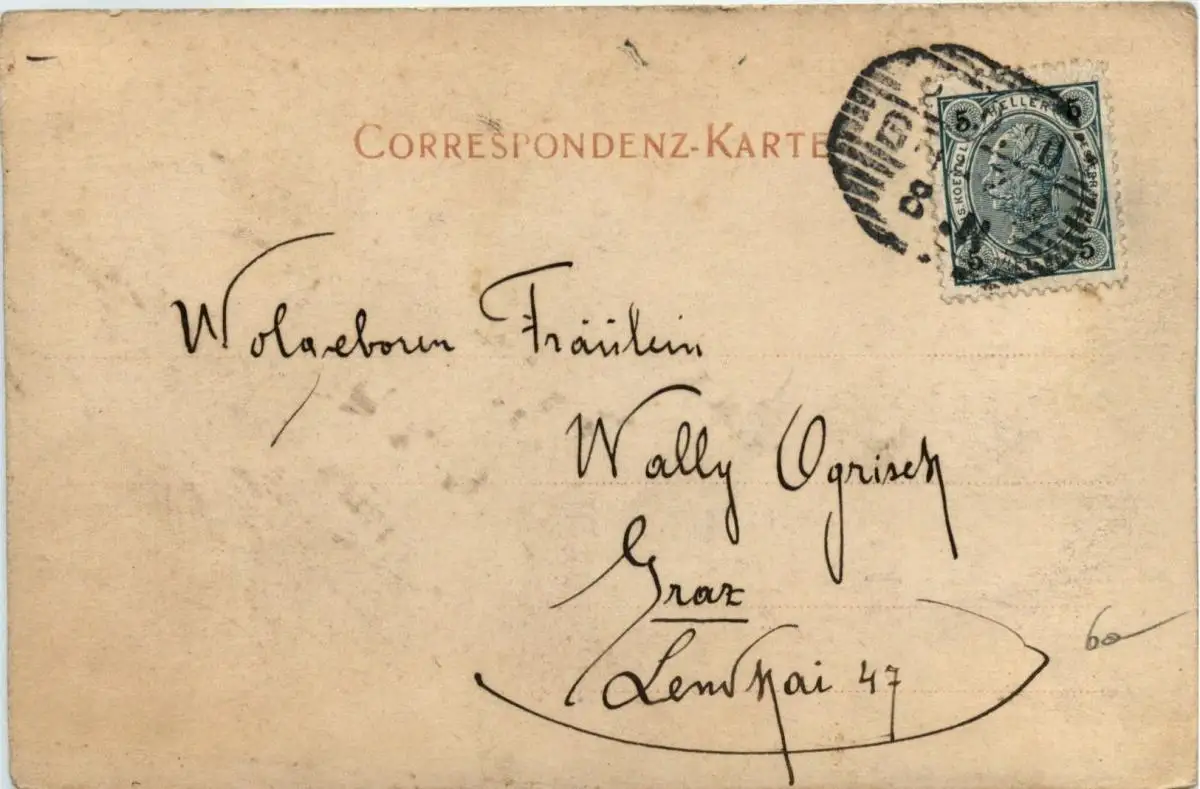 CORRESPONDENZ-KARTE
5 HELLER 5
5 5
Wolgeboren Fräulein
Wally Ogrisek
Graz
Lendkai 47
60